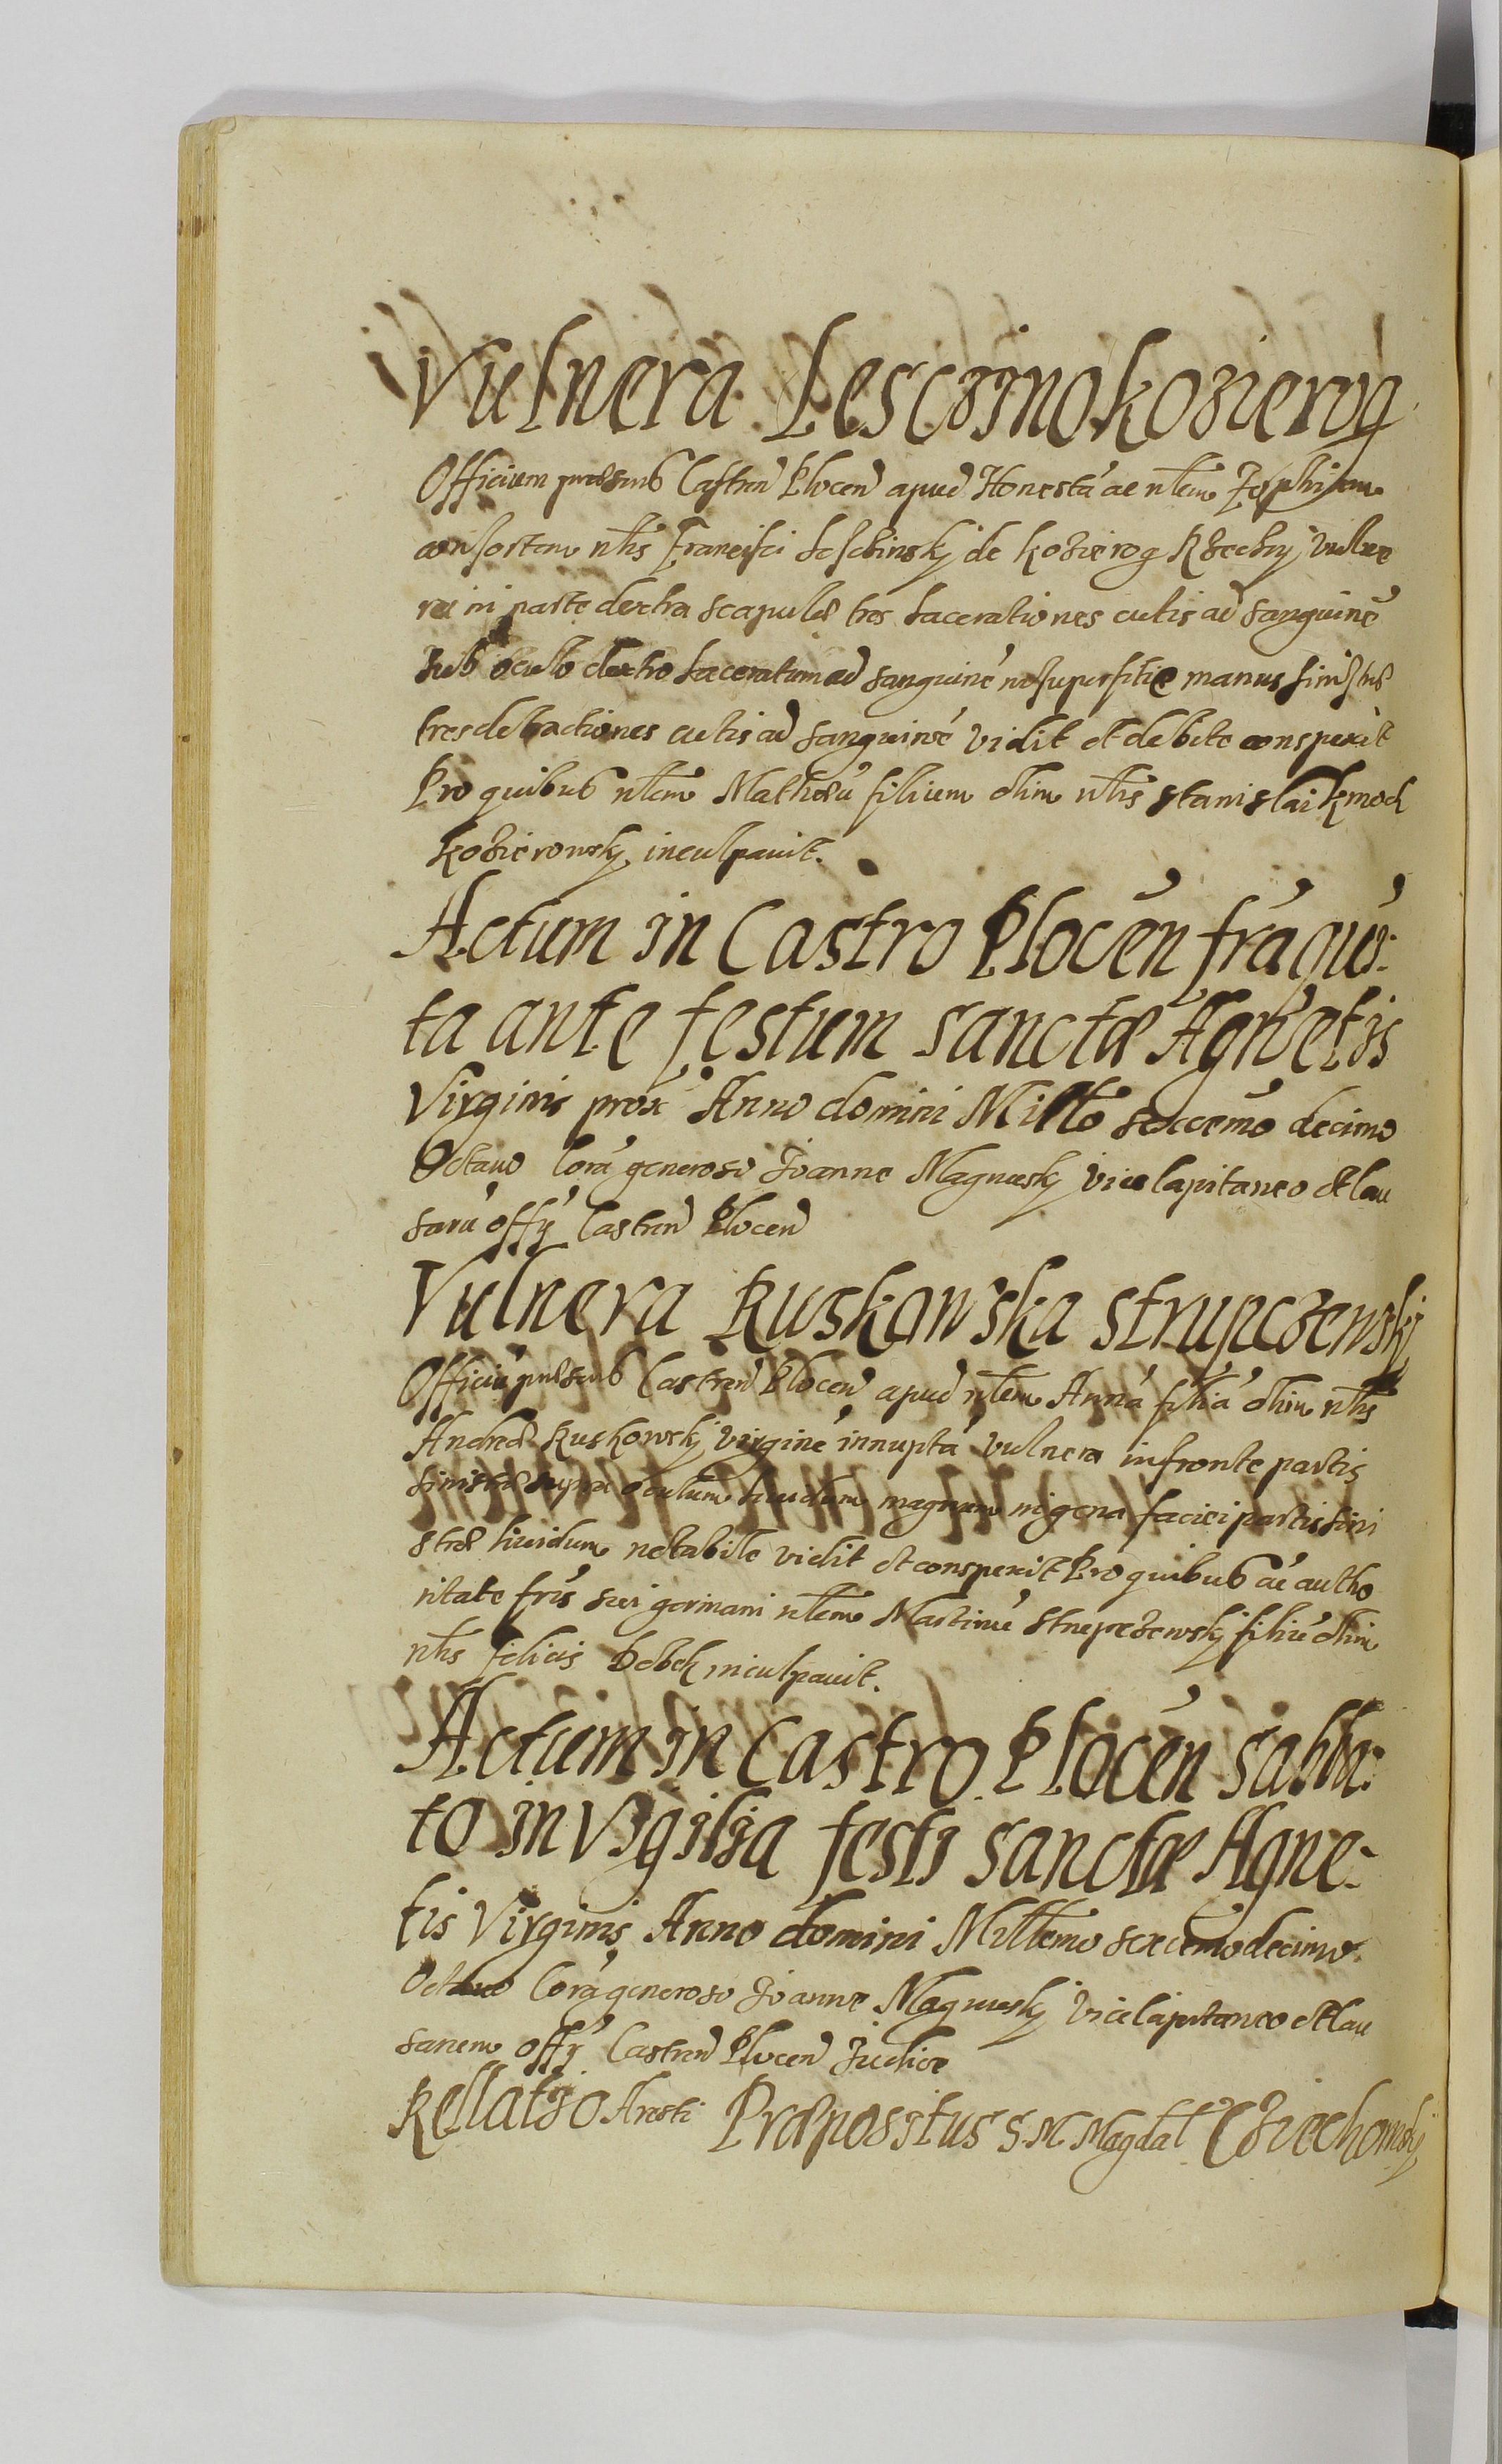 Vulnera Lesczino Kozierog
Officium præsens Castren Plocen apud Honestā ac nłem Zophiam
consortem nłis Francisci Leschinskj de Kozierog Rzeczky vulne
ra in parte dextra scapulæ tres lacerationes cutis ad sanguinē
sub oculo dextro laceratum ad sanguinē in superfitie manus sinistræ
tres detractiones cutis ad sanguinē vidit et debite conspexit
Pro quibus nłem Mathæū filium olim nłis Stanislai Kmoch
Kozierowskj inculpavit.
Actum in Castro Plocēn fr̄a quī:
ta ante festum sanctæ Agnetis
Virginis prox Anno domini Millo sexcēmo decimo
Octavo Corā generoso Joanne Magnuskj Vice Capitaneo et Cau
sarū offÿ Castren Plocen
Vulnera Ruskowska Strupczewskj
Officiū præsens Castren Plocen apud nłem Annā filiā olim nłis
Andreæ Ruskowskj virginē innuptā vulnera in fronte partis
sinistræ supra oculum lividum magnum in gena faciei partis sini
stræ lividum notabile vidit et conspexit Pro quibus ac autho
ritate fr̄is sui germani nłem Martinū Strupczewskj filiū olim
nłis Felicis Bobek inculpavit.
Actum in Castro Plocēn Sabba:
to in Vigilia festi sanctæ Agne-
tis Virginis Anno domini Millemo sexcēmo decimo
Octavo Corā generoso Joanne Magnuskj Vice Capitaneo et Cau
sarum offÿ Castren Plocen Judice
Rellatio Aresti Præpositus S. M. Magdal Cziechomskj